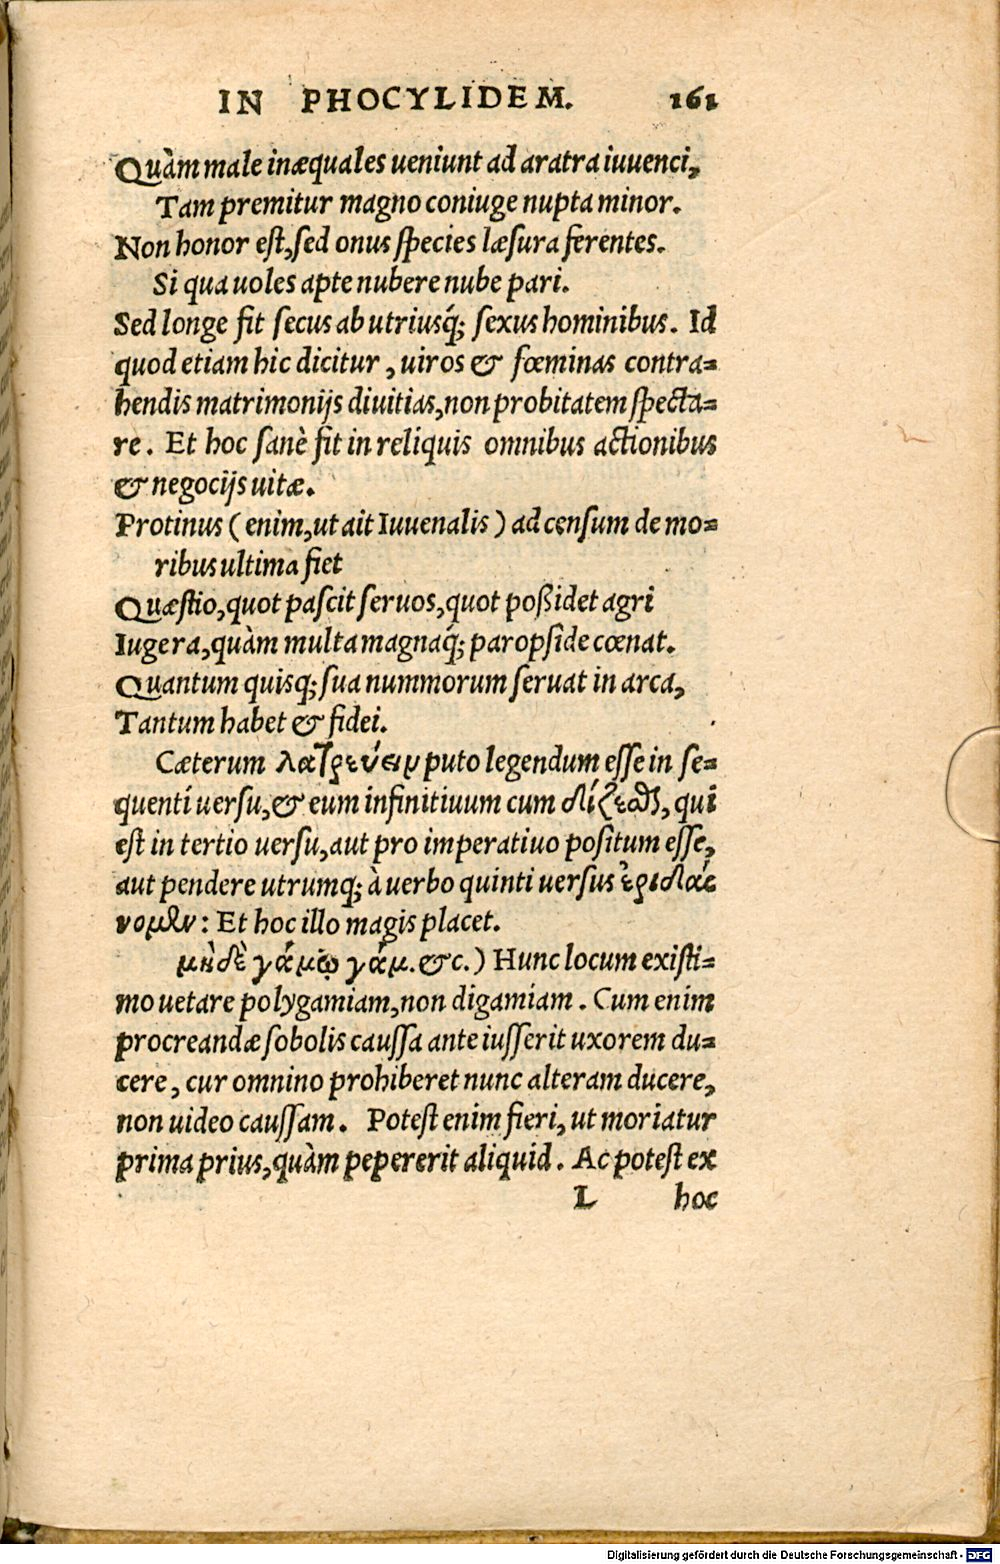 IN PHOCYLIDEM. 161
Quàm male inæquales ueniunt ad aratra iuuenci,
Tam premitur magno coniuge nupta minor.
Non honor est, sed onus species læsura ferentes.
Si qua uoles apte nubere nube pari.
Sed longe fit secus ab utriusq́; sexus hominibus. Id
quod etiam hic dicitur, uiros & fœminas contra=
hendis matrimonijs diuitias, non probitatem specta=
re. Et hoc sanè fit in reliquis omnibus actionibus
& negocijs uitæ.
Protinus (enim, ut ait Iuuenalis) ad censum de mo=
ribus ultima fiet
Quæstio, quot pascit seruos, quot poßidet agri
Iugera, quàm multa magnaq́; paropside cœnat.
Quantum quisq; sua nummorum seruat in arca,
Tantum habet & fidei.
Cæterum λατρεύειν puto legendum esse in se=
quenti uersu, & eum infinitiuum cum δίζεσθαι, qui
est in tertio uersu, aut pro imperatiuo positum esse,
aut pendere utrumq; à uerbo quinti uersus ἐριδαί
νομεν: Et hoc illo magis placet.
μηδὲ γάμῳ γάμ. &c.) Hunc locum existi=
mo uetare polygamiam, non digamiam. Cum enim
procreandæ sobolis caussa ante iusserit uxorem du=
cere, cur omnino prohiberet nunc alteram ducere,
non uideo caussam. Potest enim fieri, ut moriatur
prima prius, quàm pepererit aliquid. Ac potest ex
L hoc
Digitalisierung gefördert durch die Deutsche Forschungsgemeinschaft - DFG